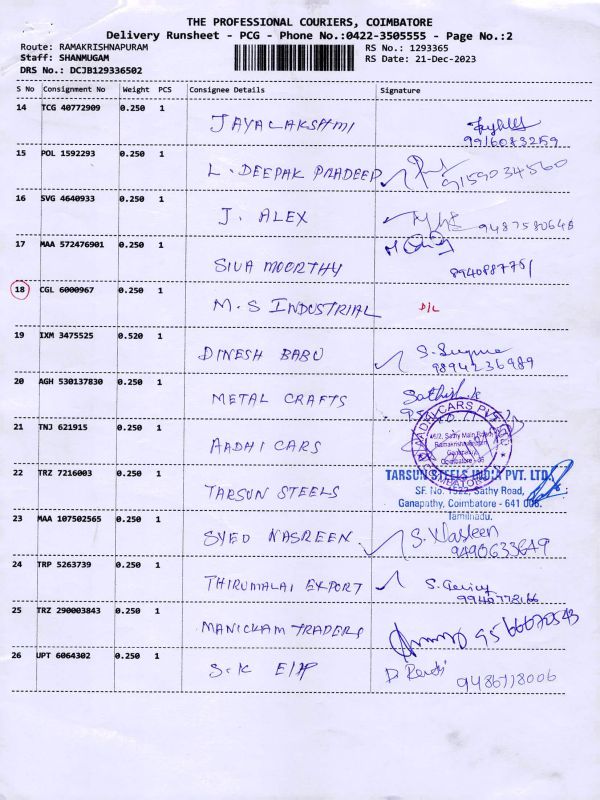 THE PROFESSIONAL COURIERS, COIMBATORE
Delivery Runsheet - PCG - Phone No.:0422-3505555 - Page No.:2
Route: RAMAKRISHNAPURAM RS No.: 1293365
Staff: SHANMUGAM RS Date: 21-Dec-2023
DRS No.: DCJB129336502
S No Consignment No Weight PCS Consignee Details Signature
14 TCG 40772909 0.250 1
JAYALAKSHMI
9916083259
15 POL 1592293 0.250 1
L. DEEPAK PRADEEP 9159034560
16 SVG 4640933 0.250 1
J. ALEX 9487580646
17 MAA 572476901 0.250 1
SIVA MOORTHY 8940887751
18 CGL 6000967 0.250 1
M.S INDUSTRIAL D/L
19 IXM 3475525 0.520 1
DINESH BABU 9894236989
20 AGH 530137830 0.250 1
METAL CRAFTS Sathish.k
21 TNJ 621915 0.250 1
AADHI CARS
AADHI CARS PVT. LTD
46/2, Sathy Main Road
Ramakrishnapuram
Ganapathy
Coimbatore - 06
COIMBATORE
22 TRZ 7216003 0.250 1
TARSUN STEELS
TARSUN STEELS INDIA PVT. LTD.
SF. No. 1522, Sathy Road,
Ganapathy, Coimbatore - 641 006.
Tamilnadu.
23 MAA 107502565 0.250 1
SYED NASREEN S. Nasleen
9490633649
24 TRP 5263739 0.250 1
THIRUMALAI EXPORT
9940778166
25 TRZ 290003843 0.250 1
MANICKAM TRADERS 9566670543
26 UPT 6064302 0.250 1
S.K EIP 9486718006